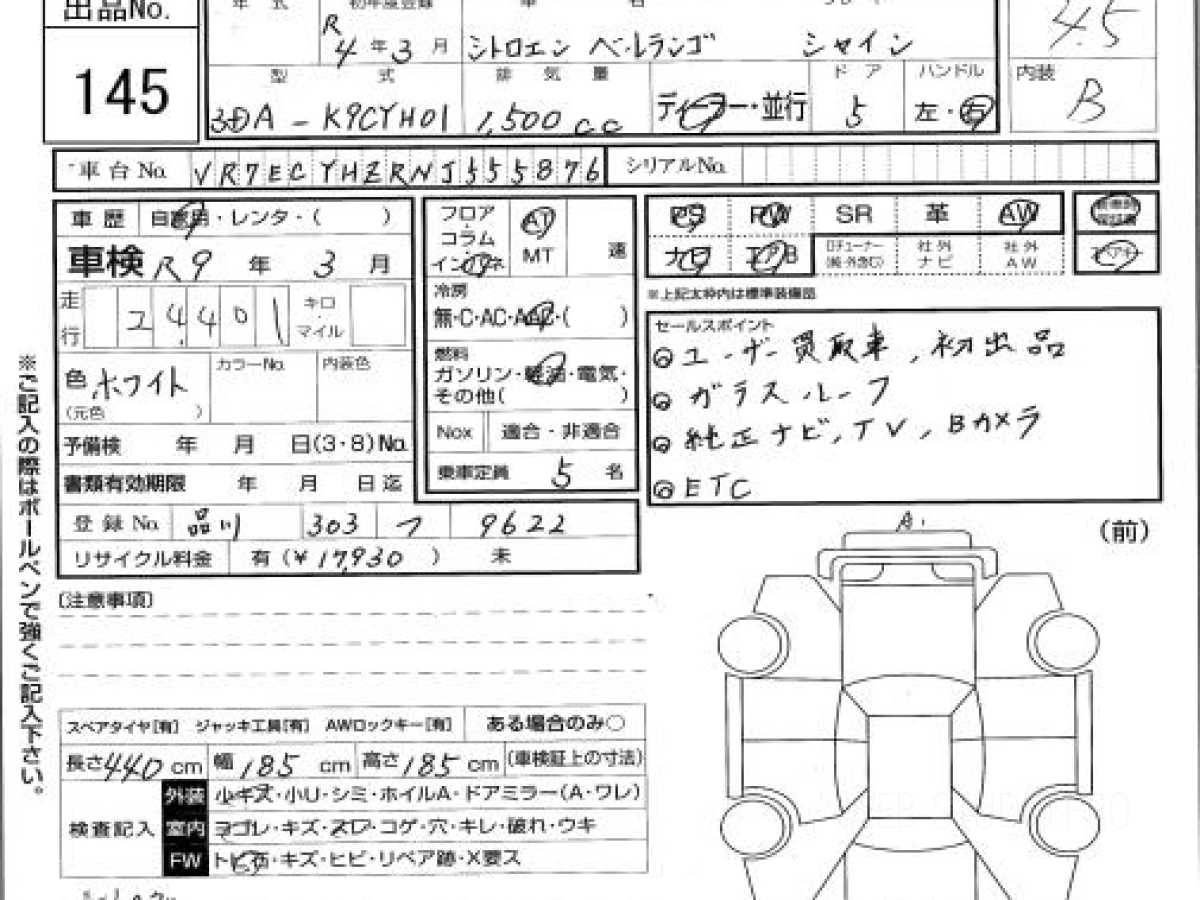 出品No.
145
年 式
初年度登録
R
4年3月
シトロエン ベルランゴ シャイン
4.5
型 式
3DA-K9CYH01
排 気 量
1,500cc
ディーラー・並行
ドア
5
ハンドル
左・右
内装
B
車台No. VR7ECYHZRNJ555876
シリアルNo.
車歴 自家用・レンタ・( )
車検 R9年3月
走行 24,401 キロ・マイル
色 ホワイト
(元色 )
カラーNo.
内装色
予備検 年 月 日(3・8)No.
書類有効期限 年 月 日迄
登録No. 品川 303 つ 9622
リサイクル料金 有(¥17,930) 未
フロア
コラム
インパネ
AT
MT
速
冷房
無・C・AC・AAC・( )
燃料
ガソリン・軽油・電気・
その他( )
Nox 適合・非適合
乗車定員 5 名
PS PW SR 革 AW
ナビ エアB
社外ナビ
社外AW
※上記太枠内は標準装備品
セールスポイント
◎ユーザー買取車,初出品
◎ガラスルーフ
◎純正ナビ,TV,Bカメラ
◎ETC
※ご記入の際はボールペンで強くご記入下さい。
[注意事項]
A1
(前)
スペアタイヤ[有] ジャッキ工具[有] AWロックキー[有] ある場合のみ○
長さ440cm 幅185cm 高さ185cm (車検証上の寸法)
検査記入
外装 小キズ・小U・シミ・ホイルA・ドアミラー(A・ワレ)
室内 ヨゴレ・キズ・スレ・コゲ・穴・キレ・破れ・ウキ
FW トビ石・キズ・ヒビ・リペア跡・X要ス